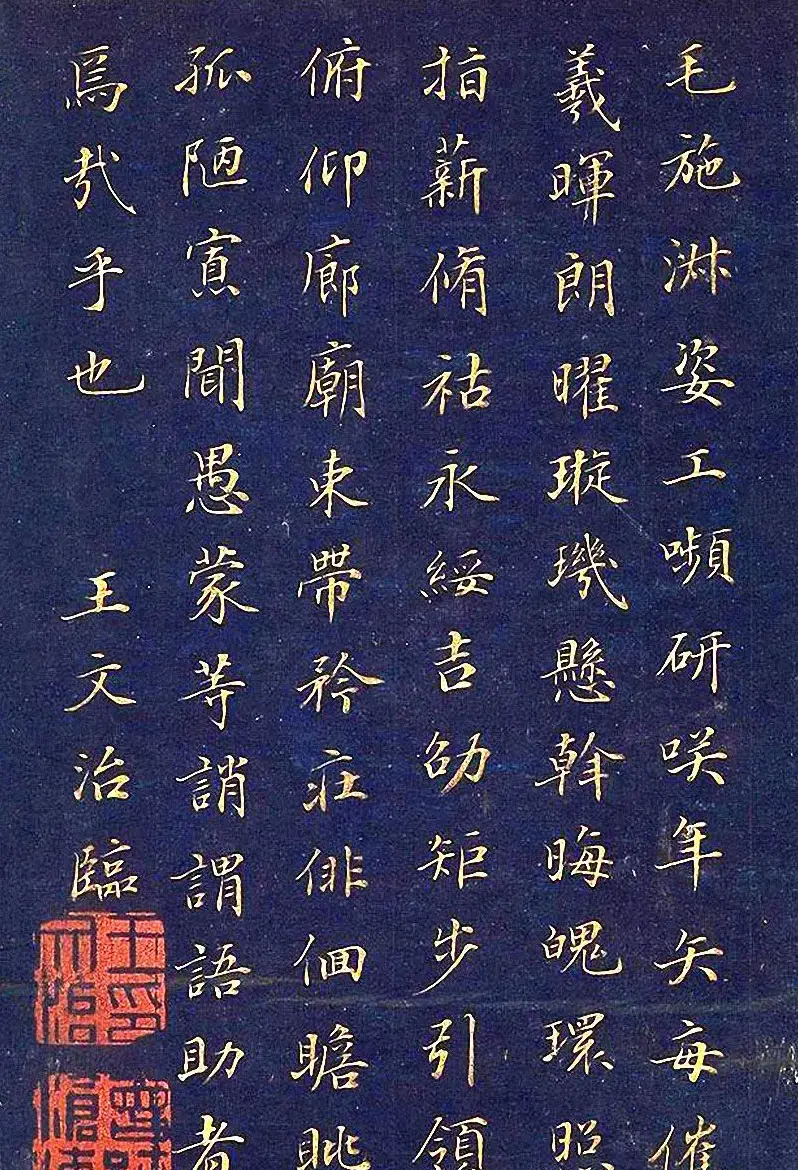 毛施淑姿工嚬研咲年矢每催
羲暉朗曜璇璣懸斡晦魄環照
指薪脩祜永綏吉劭矩步引領
俯仰廊廟束帶矜莊俳佪瞻眺
孤陋寡聞愚蒙等誚謂語助者
焉哉乎也
王文治臨
王印文治